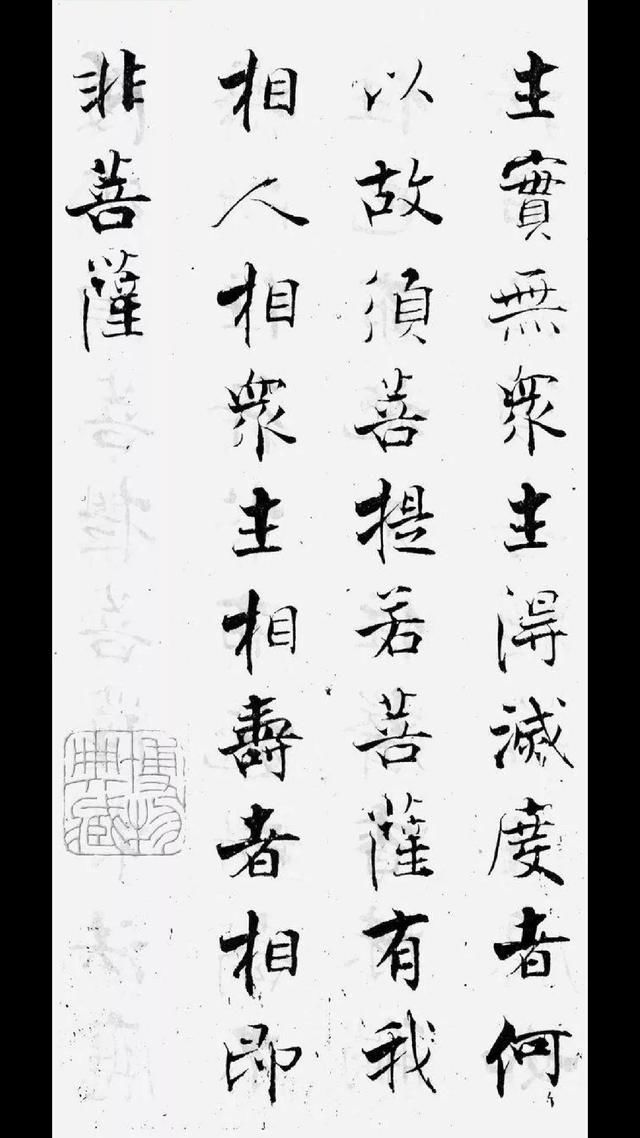 生實無衆生得滅度者何
以故須菩提若菩薩有我
相人相衆生相壽者相即
非菩薩
博物
典藏